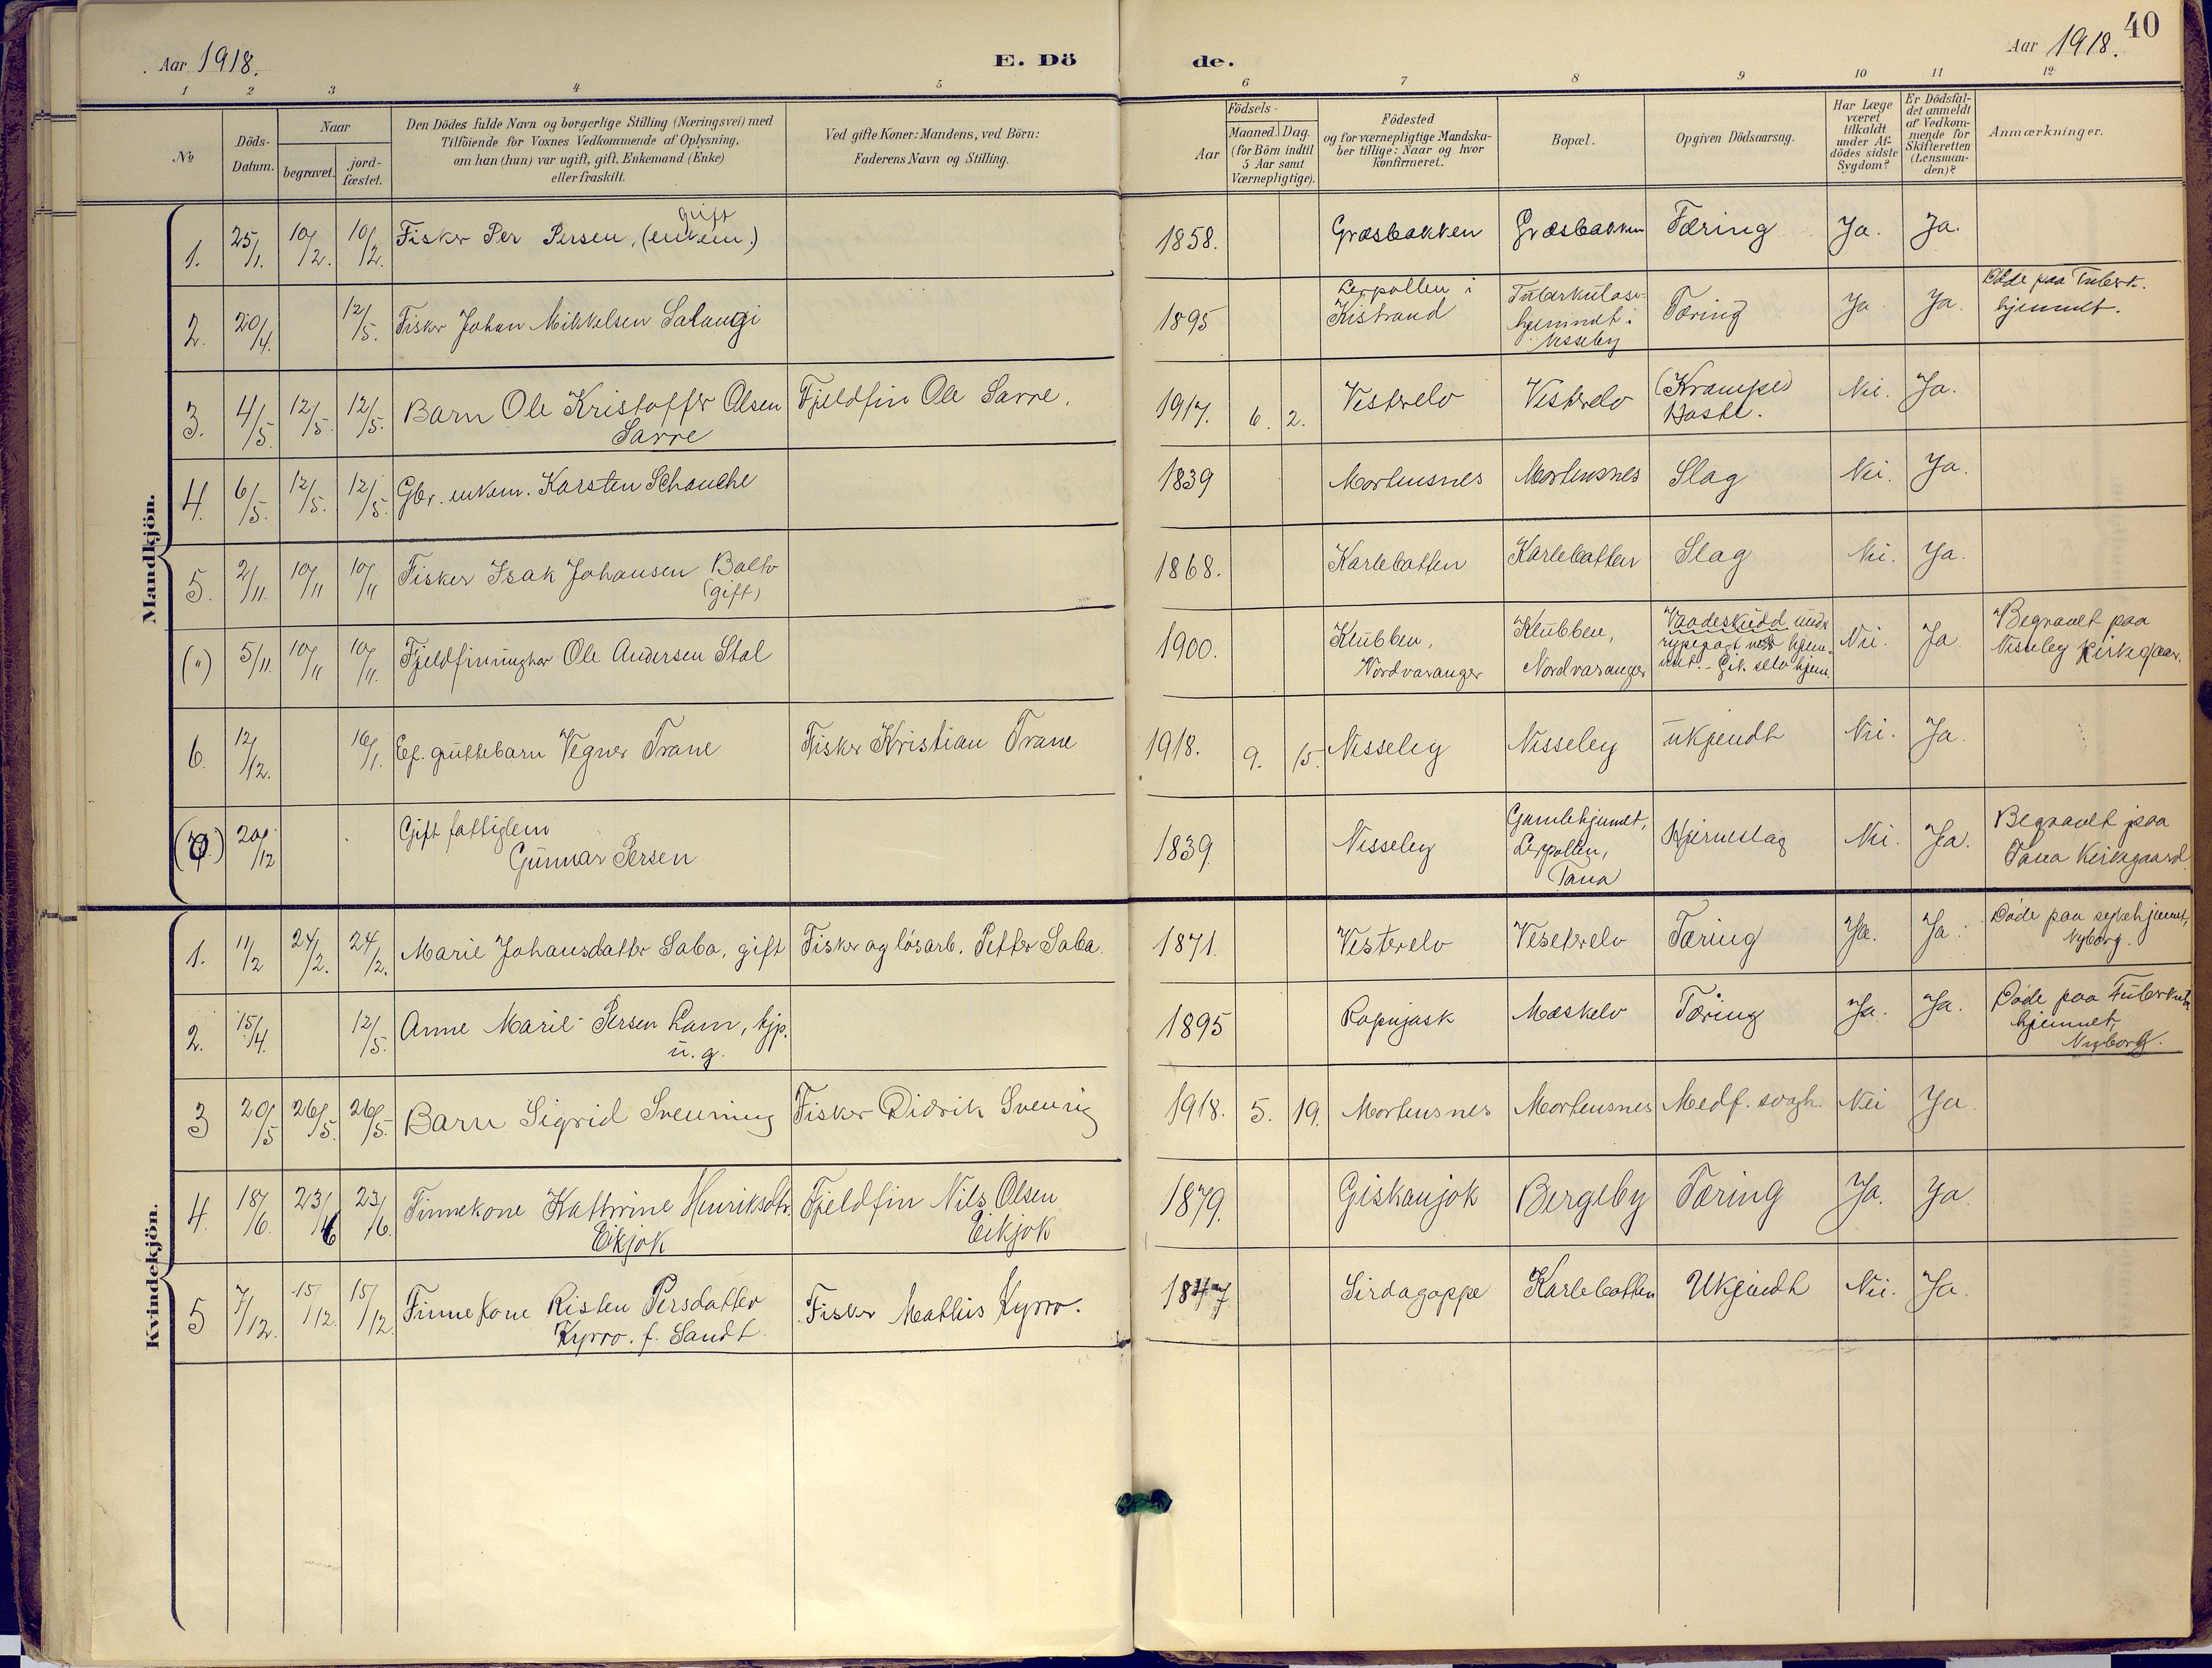 Aar 1918. E. Dö de. Aar 1918. 40
1 2 3 4 5 6 7 8 9 10 11 12
No
Döds-
Datum.
Naar
begravet.
jord-
fæstet.
Den Dödes fulde Navn og borgerlige Stilling (Næringsvei) med
Tilföiende for Voxnes Vedkommende af Oplysning,
om han (hun) var ugift, gift, Enkemand (Enke)
eller fraskilt.
Ved gifte Koner: Mandens, ved Börn:
Faderens Navn og Stilling.
Födsels-
Aar
Maaned. Dag.
(for Börn indtil
5 Aar samt
Værnepligtige).
Födested
og for værnepligtige Mandska-
ber tillige: Naar og hvor
konfirmeret.
Bopæl.
Opgiven Dödsaarsag.
Har Læge
været
tilkaldt
under Af-
dödes sidste
Sygdom?
Er Dödsfal-
det anmeldt
af Vedkom-
mende for
Skifteretten
(Lensman-
den)?
Anmærkninger.
Mandkjön.
gift
1. 25/1. 10/2. 10/2. Fisker Per Persen, (enkem.) 1858. Græsbakken Græsbakken Tæring Ja. Ja.
2. 20/4. 12/5. Fisker Johan Mikkelsen Salangi 1895 Leirpollen i
Kistrand
Tuberkulose-
hjemmet i
Nesseby
Tæring Ja Ja. Døde paa Tuberk.
hjemmet.
3. 4/5. 12/5. 12/5. Barn Ole Kristoffer Olsen
Sarre
Fjeldfin Ole Sarre. 1917. 6. 2. Vesterelv Vesterelv (Krampe)
Hoste.
Nei. Ja.
4. 6/5. 12/5. 12/5. Gbr. enkem. Karsten Schanche 1839 Mortensnes Mortensnes Slag Nei. Ja.
5. 2/11. 10/11 10/11 Fisker Isak Johansen Balto
(gift)
1868. Karlebotten Karlebotten Slag Nei. Ja.
(") 5/11. 10/11 10/11. Fjeldfinungkar Ole Andersen Stal 1900. Klubben,
Nordvaranger
Klubben,
Nordvaranger
Vaadeskudd under
rypejagt ved hjem-
met. Gik selv hjem.
Nei. Ja Begravet paa
Nesseby Kirkegaar.
6. 12/12. 16/1. Ef. guttebarn Vegner Trane Fisker Kristian Trane 1918. 9. 15. Nesseby Nesseby ukjendt Nei. Ja.
20/12 Gift fattiglem
Gunnar Persen
1839. Nesseby Gamlehjemmet,
Leirpollen,
Tana
Hjerneslag Nei. Ja. Begravet paa
Tana Kirkegaard
Kvindekjön.
1. 11/2 24/2. 24/2. Marie Johansdatter Saba, gift Fisker og løsarb. Petter Saba. 1871. Vesterelv Vesterelv Tæring Ja. Ja. Døde paa sykehjemmet,
Nyborg.
2. 15/4. 12/5. Anne Marie Persen Lam, hjp.
u. g.
1895 Ropnjask Mæskelv Tæring Ja. Ja. Døde paa Tuberkul.
hjemmet,
Nyborg.
3 20/5 26/5. 26/5. Barn Sigrid Svenning Fisker Didrik Svenig 1918. 5. 19. Mortensnes Mortensnes Medf. svagh. Nei Ja.
4. 18/6. 23/6 23/6. Finnekone Kathrine Henriksdtr.
Eikjok
Fjeldfin Nils Olsen
Eikjok
1879. Giskanjok Bergeby Tæring Ja. Ja.
5 7/12. 15/12. 15/12. Finnekone Risten Persdatter
Kyrro. f. Sandt.
Fisker Mathis Kyrro. 1847 Sirdagoppe Karlebotten Ukjendt Nei. Ja.